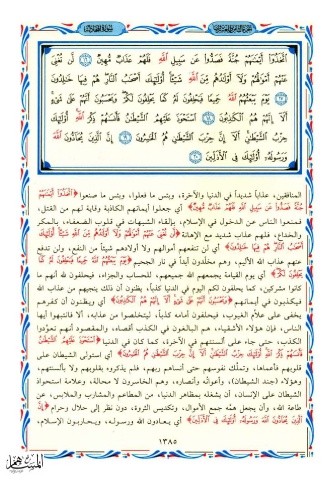 ٱتَّخَذُوٓا۟ أَيْمَٰنَهُمْ جُنَّةً فَصَدُّوا۟ عَن سَبِيلِ ٱللَّهِ فَلَهُمْ عَذَابٌ مُّهِينٌ ١٦ لَّن تُغْنِىَ
عَنْهُمْ أَمْوَٰلُهُمْ وَلَآ أَوْلَٰدُهُم مِّنَ ٱللَّهِ شَيْـًٔا أُو۟لَٰٓئِكَ أَصْحَٰبُ ٱلنَّارِ هُمْ فِيهَا خَٰلِدُونَ
١٧ يَوْمَ يَبْعَثُهُمُ ٱللَّهُ جَمِيعًا فَيَحْلِفُونَ لَهُۥ كَمَا يَحْلِفُونَ لَكُمْ وَيَحْسَبُونَ أَنَّهُمْ عَلَىٰ شَىْءٍ
أَلَآ إِنَّهُمْ هُمُ ٱلْكَٰذِبُونَ ١٨ ٱسْتَحْوَذَ عَلَيْهِمُ ٱلشَّيْطَٰنُ فَأَنسَىٰهُمْ ذِكْرَ ٱللَّهِ أُو۟لَٰٓئِكَ
حِزْبُ ٱلشَّيْطَٰنِ أَلَآ إِنَّ حِزْبَ ٱلشَّيْطَٰنِ هُمُ ٱلْخَٰسِرُونَ ١٩ إِنَّ ٱلَّذِينَ يُحَآدُّونَ ٱللَّهَ
وَرَسُولَهُۥٓ أُو۟لَٰٓئِكَ فِى ٱلْأَذَلِّينَ ٢٠
المنافقين، عذاباً شديداً في الدنيا والآخرة، وبئس ما فعلوا، وبئس ما صنعوا ﴿اتَّخَذُوا أَيْمَانَهُمْ
جُنَّةً فَصَدُّوا عَن سَبِيلِ اللَّهِ فَلَهُمْ عَذَابٌ مُّهِينٌ﴾ أي جعلوا أيمانهم الكاذبة وقاية لهم من القتل،
فمنعوا الناس عن الدخول في الإسلام، بإلقاء الشبهات في قلوب الضعفاء، بالمكر
والخداع، فلهم عذاب شديد مع الإهانة ﴿لَّن تُغْنِيَ عَنْهُمْ أَمْوَالُهُمْ وَلَا أَوْلَادُهُم مِّنَ اللَّهِ شَيْئًا أُولَٰئِكَ
أَصْحَابُ النَّارِ هُمْ فِيهَا خَالِدُونَ﴾ أي لن تنفعهم أموالهم ولا أولادهم شيئاً من النفع، ولن تدفع
عنهم عذاب الله الأليم، وهم مخلدون أبداً في نار الجحيم ﴿يَوْمَ يَبْعَثُهُمُ اللَّهُ جَمِيعًا فَيَحْلِفُونَ لَهُ كَمَا
يَحْلِفُونَ لَكُمْ﴾ أي يوم القيامة يجمعهم الله جميعهم، للحساب والجزاء، فيحلفون لله أنهم ما
كانوا مشركين، كما يحلفون لكم اليوم في الدنيا كذباً، يظنون أن ذلك ينجيهم من عذاب الله
فيكذبون في أيمانهم ﴿وَيَحْسَبُونَ أَنَّهُمْ عَلَىٰ شَيْءٍ أَلَا إِنَّهُمْ هُمُ الْكَاذِبُونَ﴾ أي ويظنون أن كفرهم
يخفى على علام الغيوب، فيحلفون أمامه كذباً، ليتخلصوا من عذابه، ألا فانتبهوا أيها
الناس، فإن هؤلاء الأشقياء، هم البالغون في الكذب أقصاه، والمقصود أنهم تعودوا
الكذب، حتى جاء على ألسنتهم في الآخرة، كما كان في الدنيا ﴿اسْتَحْوَذَ عَلَيْهِمُ الشَّيْطَانُ
فَأَنسَاهُمْ ذِكْرَ اللَّهِ أُولَٰئِكَ حِزْبُ الشَّيْطَانِ أَلَا إِنَّ حِزْبَ الشَّيْطَانِ هُمُ الْخَاسِرُونَ﴾ أي استولى الشيطان على
قلوبهم فأعماها، وتملك نفوسهم حتى أنساهم ربهم، فلم يذكروه بقلوبهم ولا بألسنتهم،
وهؤلاء (جند الشيطان)، وأعوانه وأنصاره، وهم الخاسرون لا محالة، وعلامة استحواذ
الشيطان على الإنسان، أن يشغله بمظاهر الدنيا، من المطاعم والمشارب والملابس، عن
طاعة الله، وأن يجعل همه جمع الأموال، وتكديس الثروة، دون نظر إلى حلال وحرام ﴿إِنَّ
الَّذِينَ يُحَادُّونَ اللَّهَ وَرَسُولَهُ أُولَٰئِكَ فِي الْأَذَلِّينَ﴾ أي يعادون الله ورسوله، ويحاربون الإسلام،
١٣٨٥